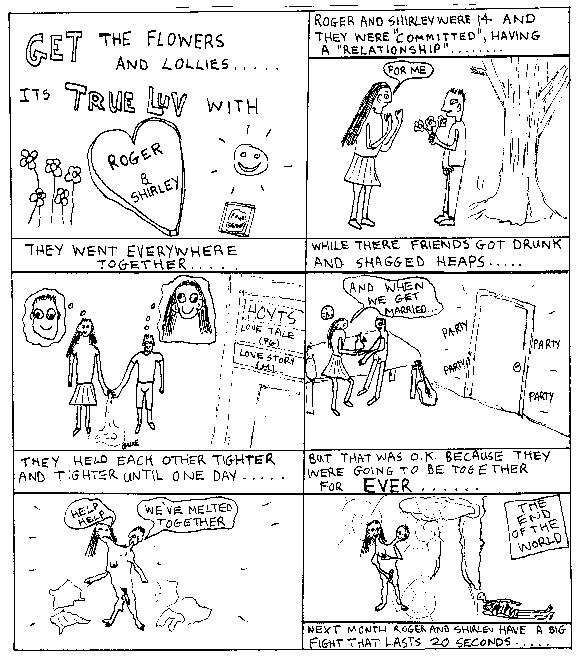 GET THE FLOWERS
AND LOLLIES.....
ITS TRUE LUV WITH
ROGER
&
SHIRLEY
ROGER AND SHIRLEY WERE 14 AND
THEY WERE "COMMITTED", HAVING
A "RELATIONSHIP"........
FOR ME
THEY WENT EVERYWHERE
TOGETHER.....
HOYTS
LOVE TALE
(PG)
LOVE STORY
(M)
WHILE THERE FRIENDS GOT DRUNK
AND SHAGGED HEAPS.....
AND WHEN
WE GET
MARRIED...
PARTY
PARTY
PARTY
PARTY
THEY HELD EACH OTHER TIGHTER
AND TIGHTER UNTIL ONE DAY.....
HELP
HELP
WE'VE MELTED
TOGETHER
BUT THAT WAS O.K. BECAUSE THEY
WERE GOING TO BE TOGETHER
FOR EVER......
THE
END
OF THE
WORLD
NEXT MONTH ROGER AND SHIRLEY HAVE A BIG
FIGHT THAT LASTS 20 SECONDS.....